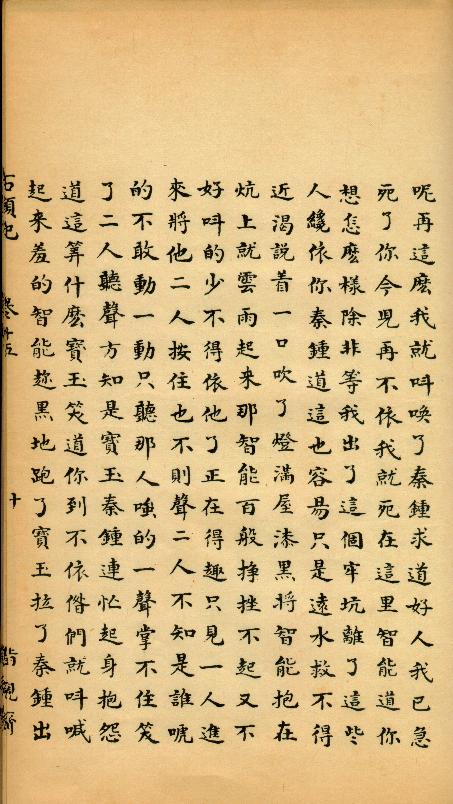 呢再這麽我就呌唤了秦鍾求道好人我已急
死了你今児再不依我就死在這里智能道你
想怎麽樣除非等我出了這個牢坑離了這些
人纔依你秦鍾道這也容易只是遠水救不得
近渴說着一口吹了燈滿屋漆黒將智能抱在
炕上就雲雨起來那智能百般挣挫不起又不
好呌的少不得依他了正在得趣只見一人進
來將他二人按住也不則聲二人不知是誰唬
的不敢動一動只聽那人嗤的一聲掌不住笑
了二人聽聲方知是寳玉秦鍾連忙起身抱怨
道這筭什麽寳玉笑道你到不依偺們就呌喊
起來羞的智能趂黒地跑了寳玉拉了秦鍾出
石頭記 卷十五 十